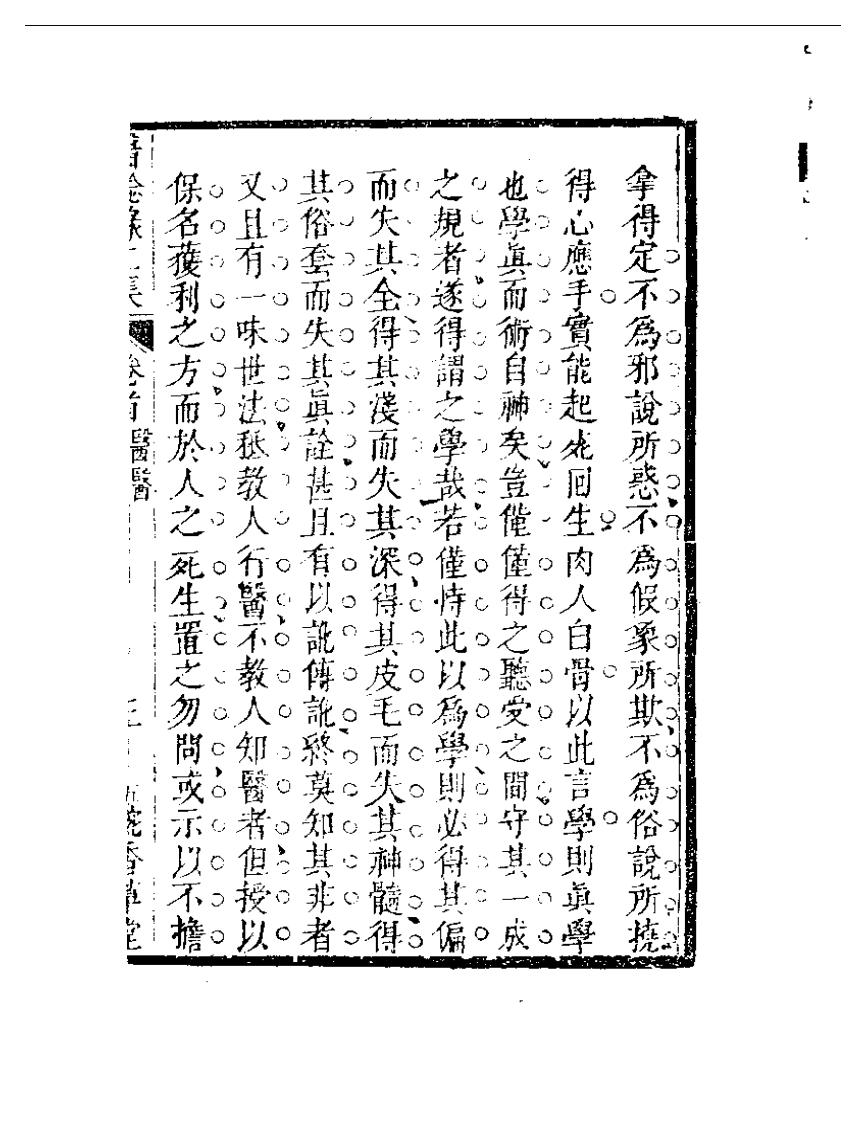 拿得定不為邪說所惑不為假象所欺不為俗說所撓
得心應手實能起死回生肉人白骨以此言學則眞學
也學眞而術自神矣豈僅僅得之聽受之間守其一成
之規者遂得謂之學哉若僅恃此以為學則必得其偏
而失其全得其淺而失其深得其皮毛而失其神髓得
其俗套而失其眞詮甚且有以訛傳訛終莫知其非者
又且有一味世法秪教人行醫不教人知醫者但授以
保名獲利之方而於人之死生置之勿問或示以不擔
卷首 醫醫